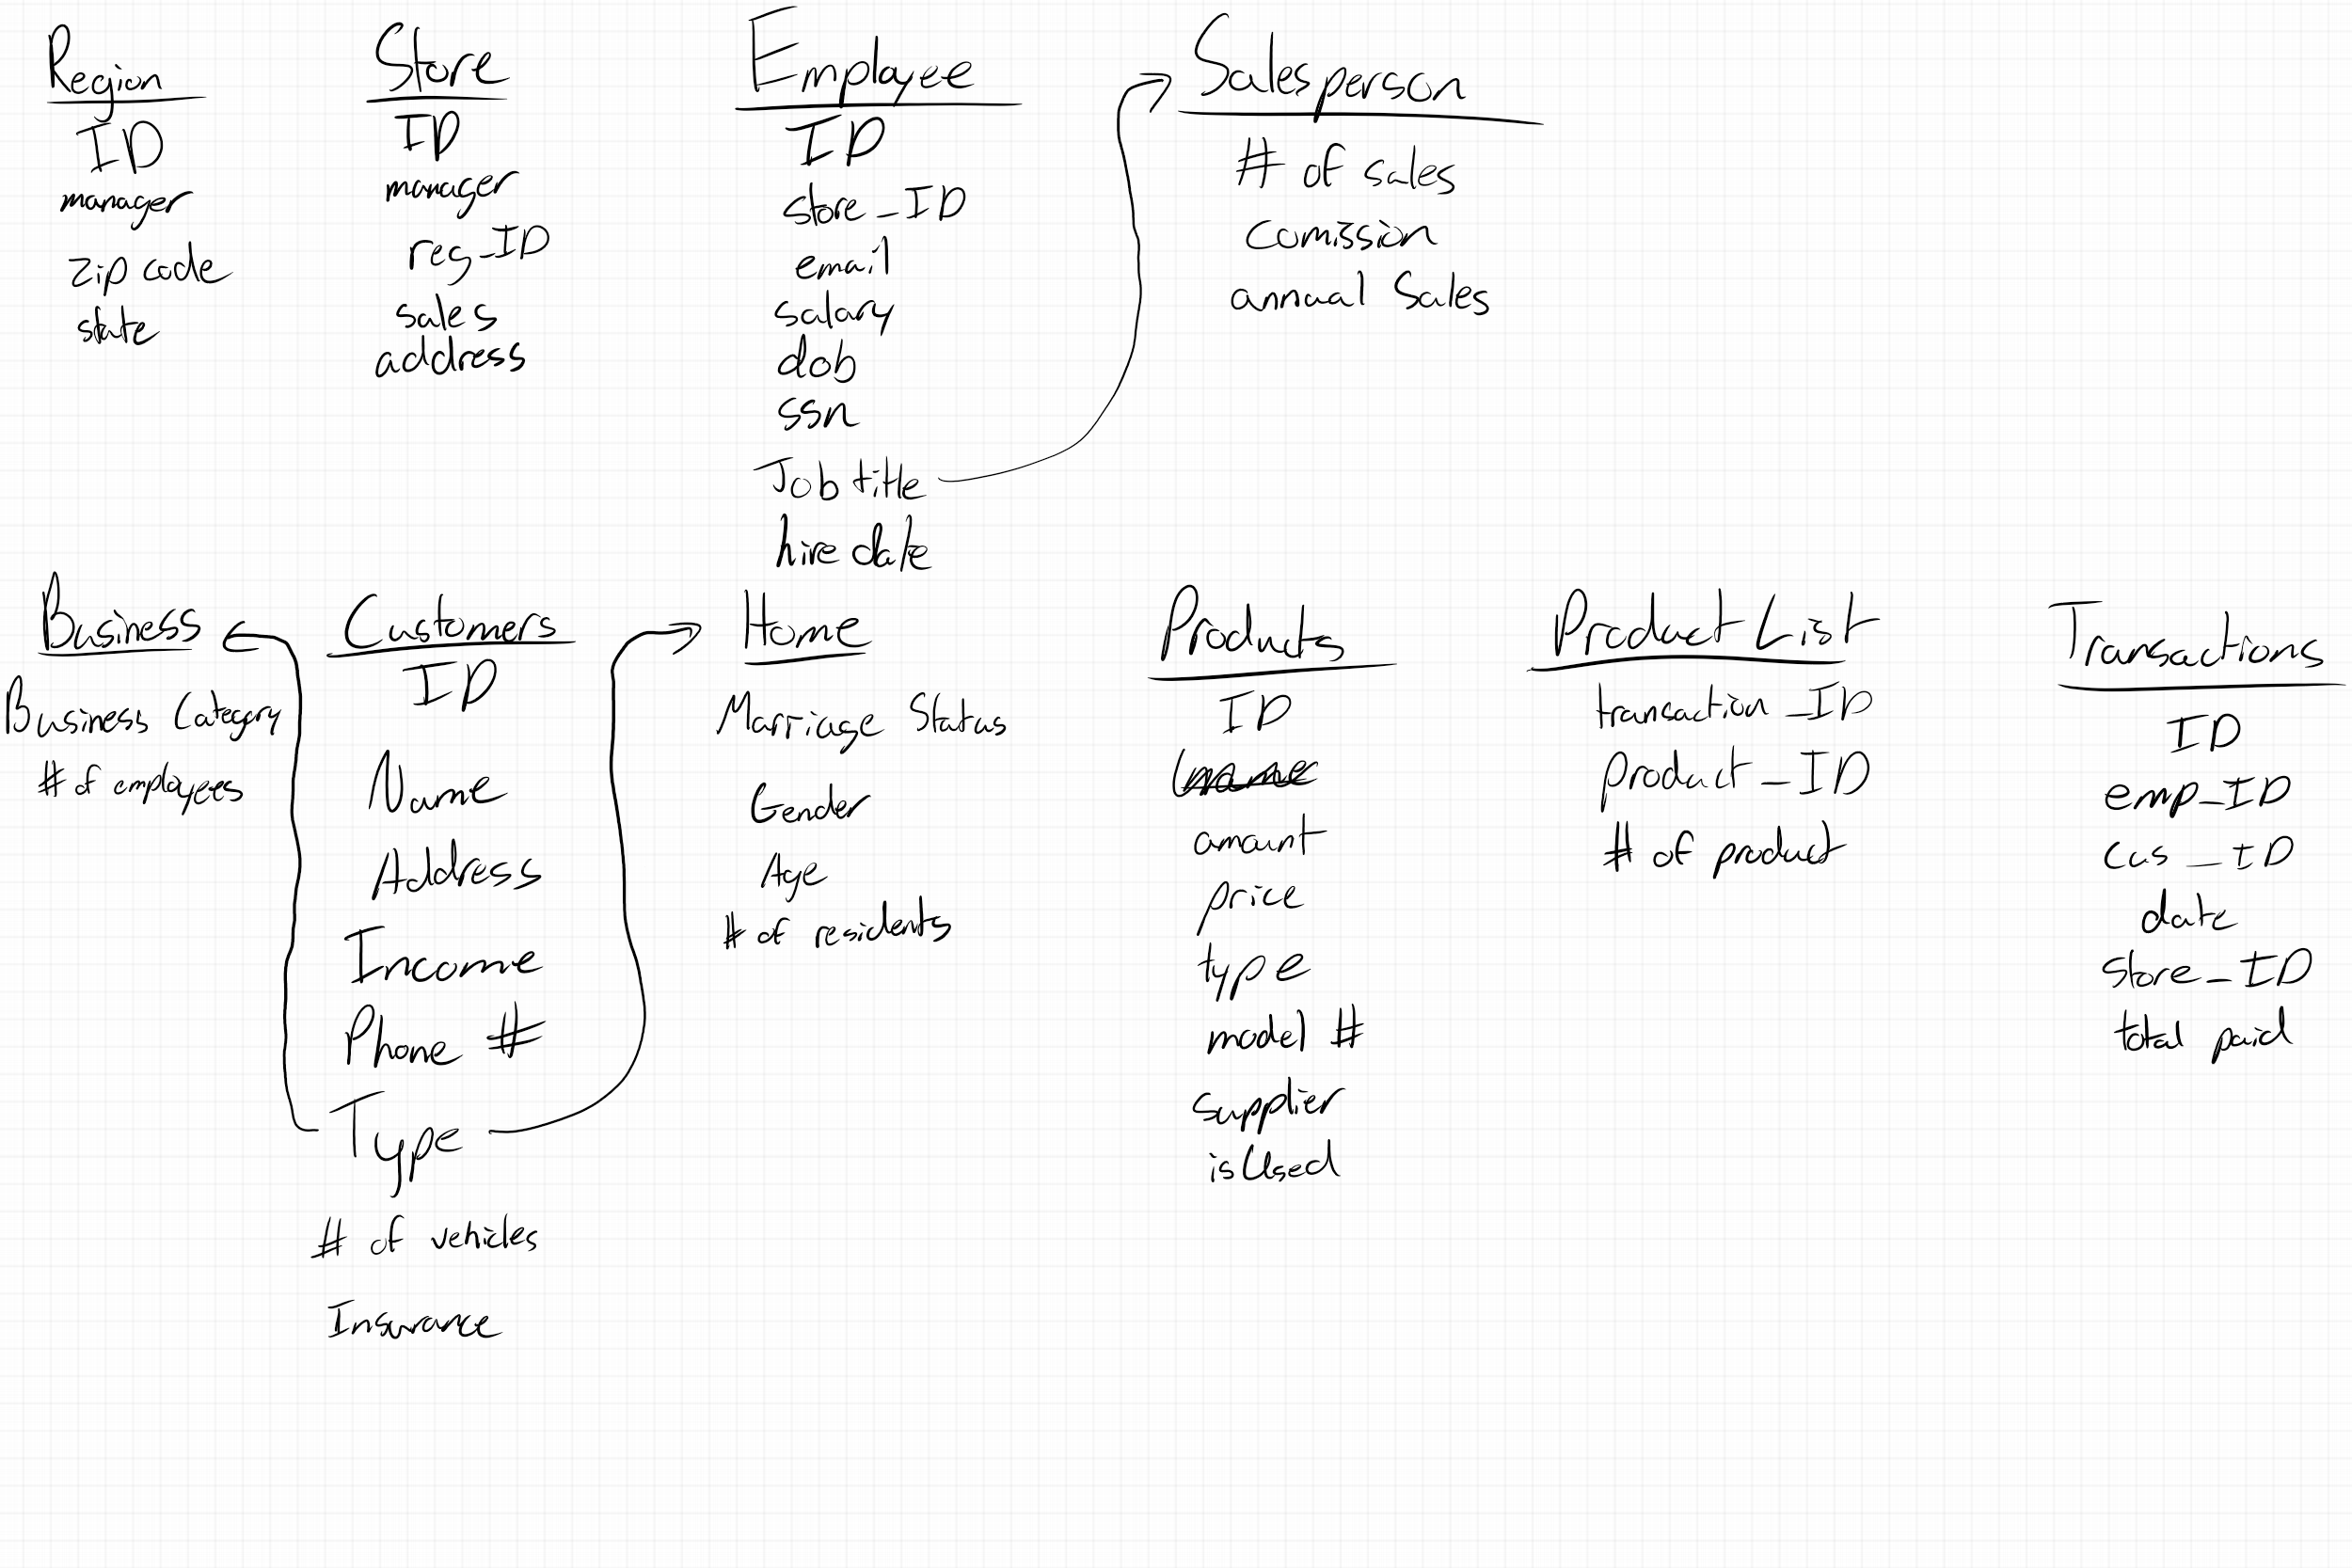 Region
ID
manager
zip code
state
Store
ID
manager
reg_ID
sales
address
Employee
ID
store_ID
email
salary
dob
ssn
Job title
hire date
Salesperson
# of sales
comission
annual Sales
Business
Business Category
# of employees
Customers
ID
Name
Address
Income
Phone #
Type
# of vehicles
Insurance
Home
Marriage Status
Gender
Age
# of residents
Products
ID
name
amount
price
type
model #
supplier
isUsed
Product List
transaction_ID
product_ID
# of product
Transactions
ID
emp_ID
cus_ID
date
store_ID
total paid